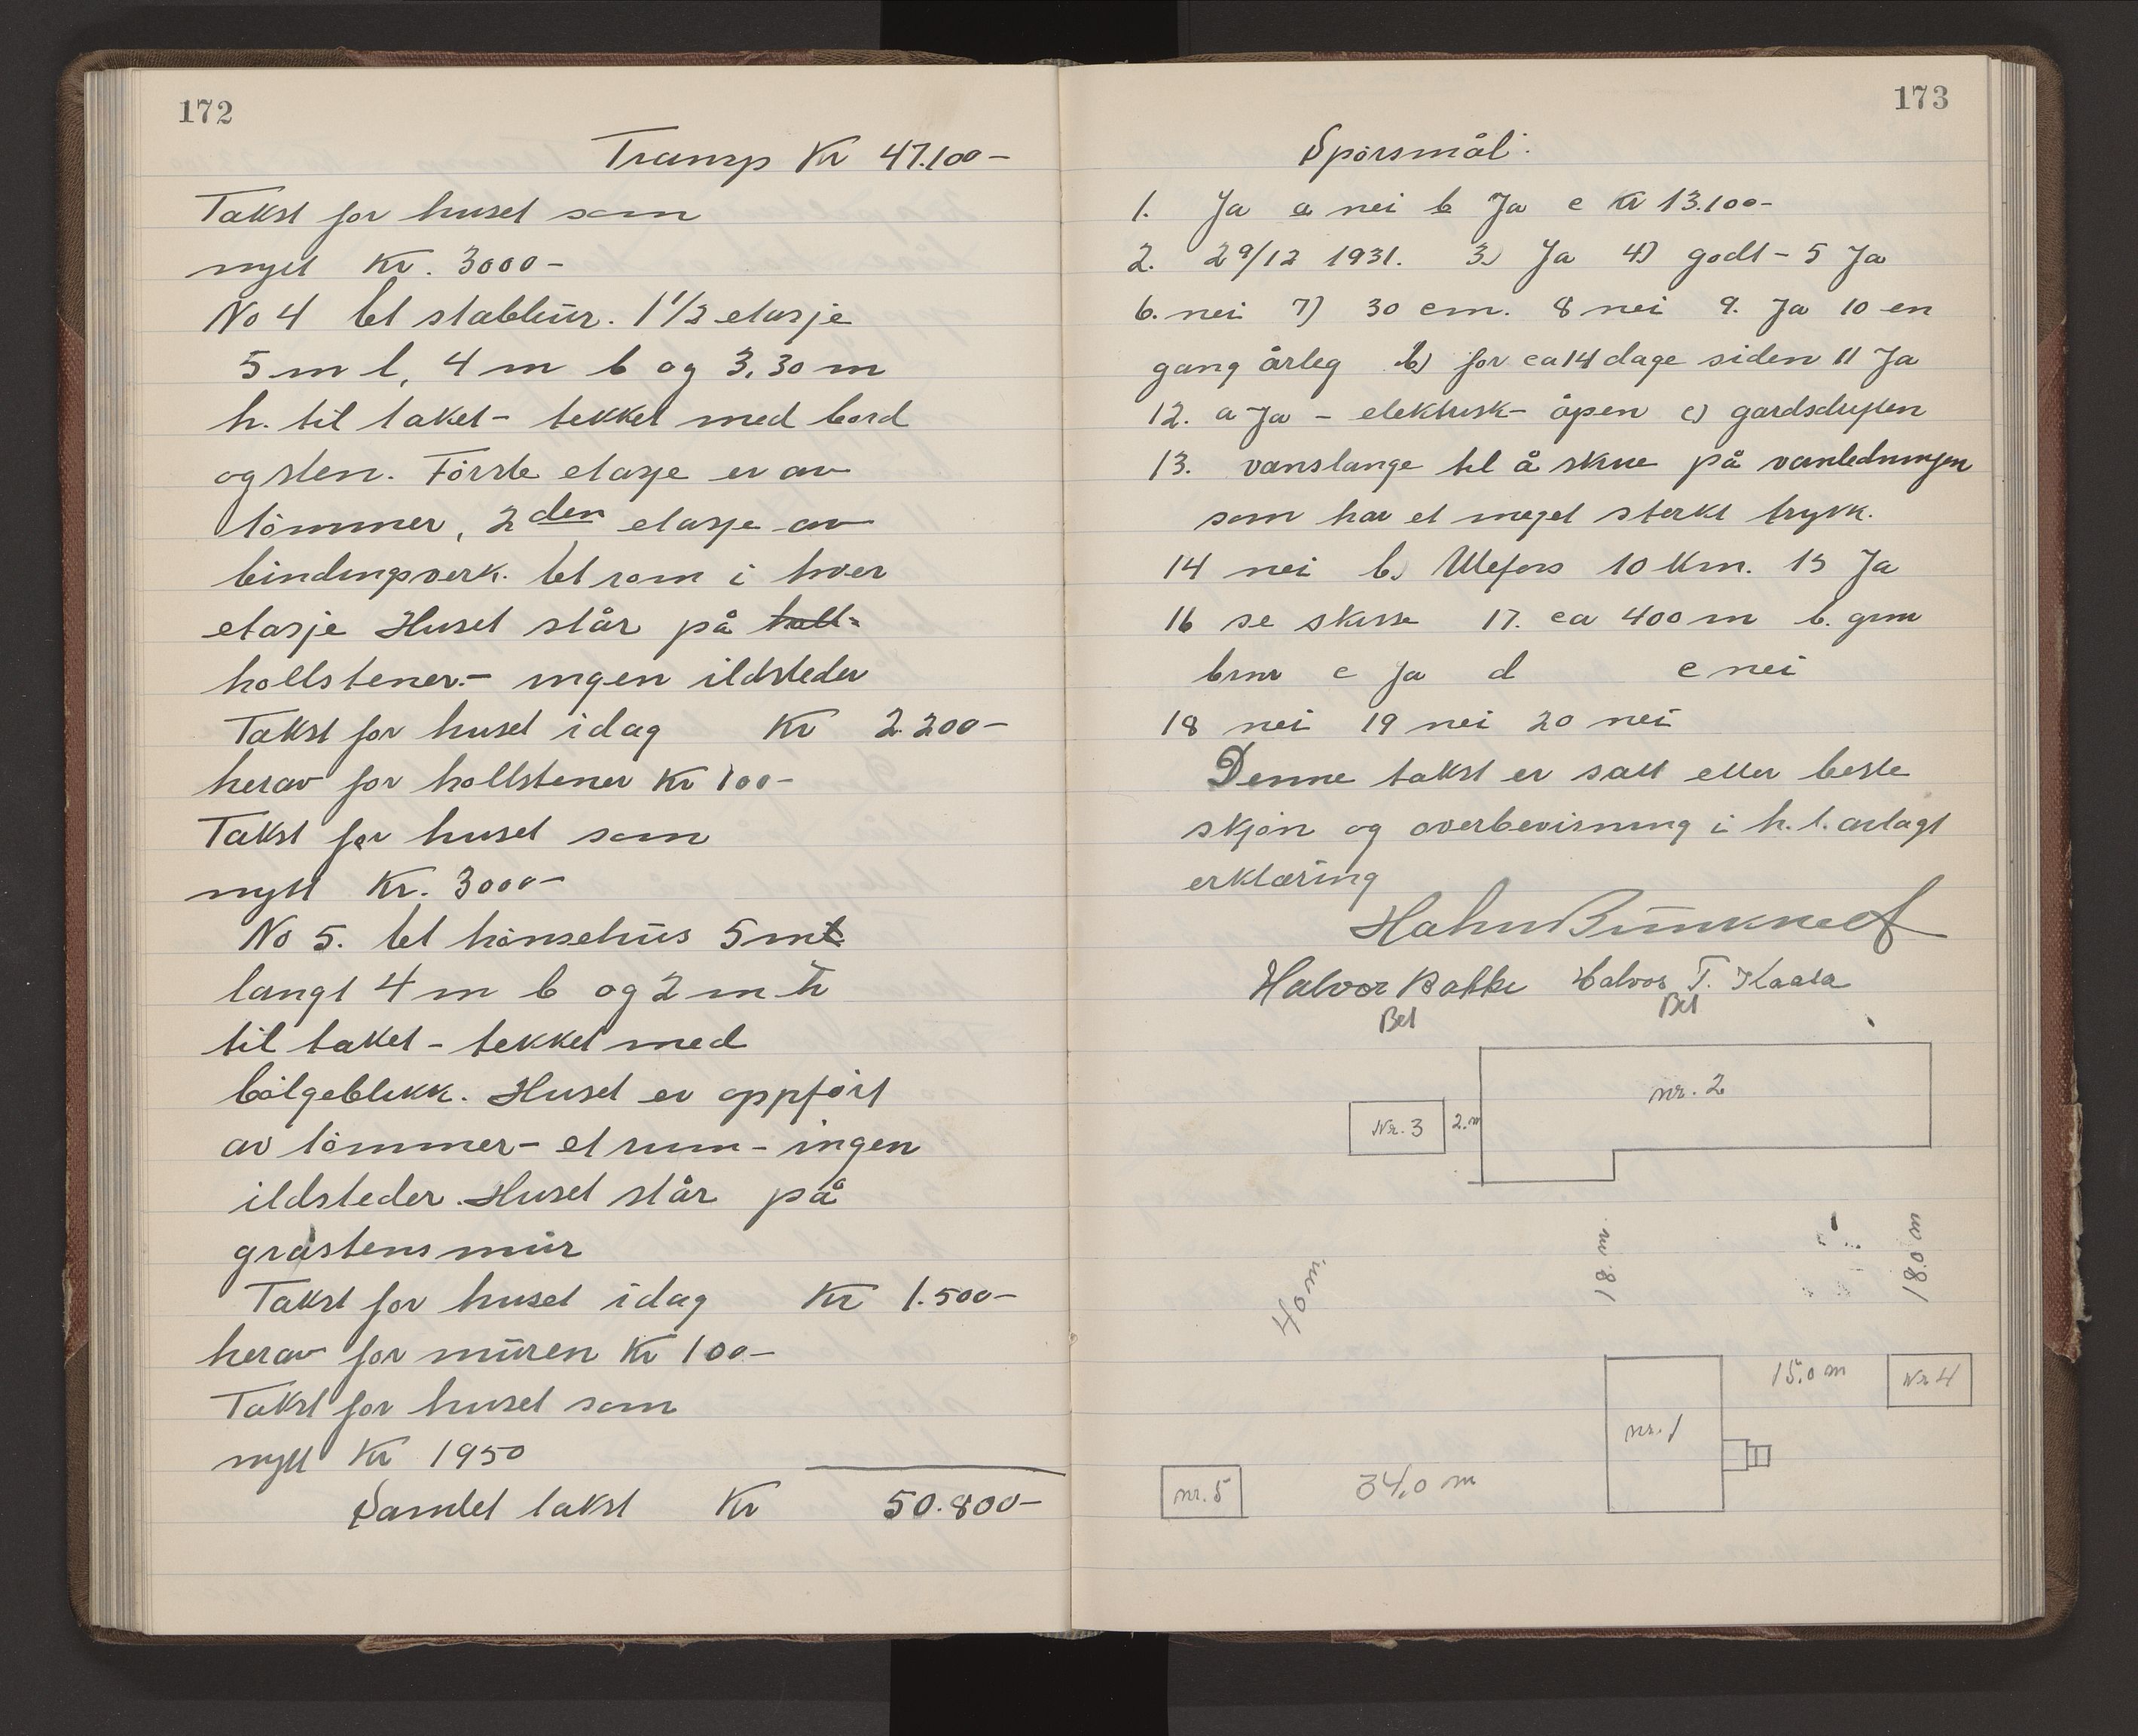 172
Transp Kr 47.100-
Takst for huset som
nytt Kr. 3000-
No 4 Et stabbur. 1 1/2 etasje
5 m l, 4 m b og 3,30 m
h. til taket - tekket med bord
og sten. Første etasje er av
tømmer, 2den etasje av
bindingsverk. Et rom i hver
etasje Huset står på
hollstener.- ingen ildsteder
Takst for huset idag Kr 2.200-
herav for hollstener Kr 100-
Takst for huset som
nytt Kr. 3000-
No 5. Et hønsehus 5 m
langt 4 m b og 2 m h
til taket - tekket med
bølgeblikk. Huset er oppført
av tømmer - et rum - ingen
ildsteder. Huset står på
gråstensmur
Takst for huset idag Kr 1.500-
herav for muren Kr 100-
Takst for huset som
nytt Kr 1950
Samlet takst Kr 50.800-
173
Spørsmål:
1. Ja a nei b Ja c Kr 13.100-
2. 29/12 1931. 3) Ja 4) godt - 5 Ja
6. nei 7) 30 cm. 8 nei 9. Ja 10 en
gang årleg b) for ca 14 dage siden 11 Ja
12. a Ja - elektrisk - åpen c)
13. vanslange til å skrue på vanledningen
som har et meget sterkt trykk.
14 nei b) Ulefoss 10 Km. 15 Ja
16 se skisse 17. ca 400 m b. grm
brm c Ja d e nei
18 nei 19 nei 20 nei
Denne takst er satt etter beste
skjøn og overbevisning i h. t. avlagt
erklæring
Halvor Bakke Halvor T. Kaasa
nr. 2
Nr. 3 2. m
18 m
18.0 m
40 m
15.0 m Nr 4
nr. 1
nr. 5 34,0 m